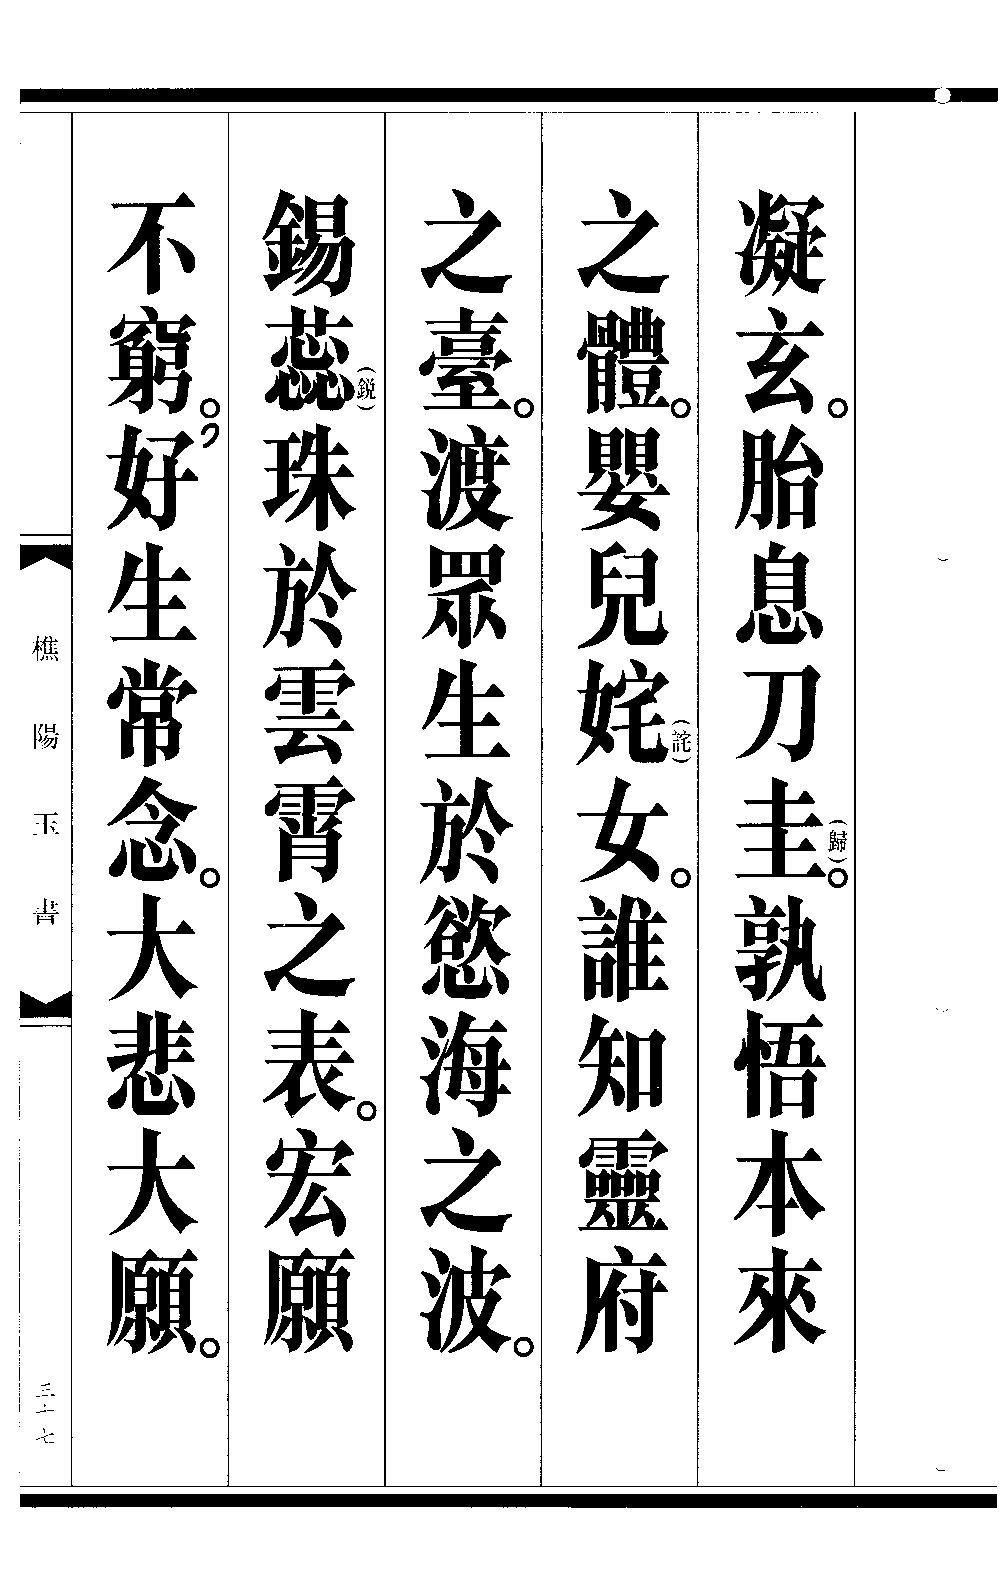 凝玄。胎息刀圭(歸)。孰悟本來
之體。嬰兒姹(詫)女。誰知靈府
之臺。渡眾生於慾海之波。
錫蕊(銳)珠於雲霄之表。宏願
不窮。好生常念。大悲大願。
樵陽玉書
三十七